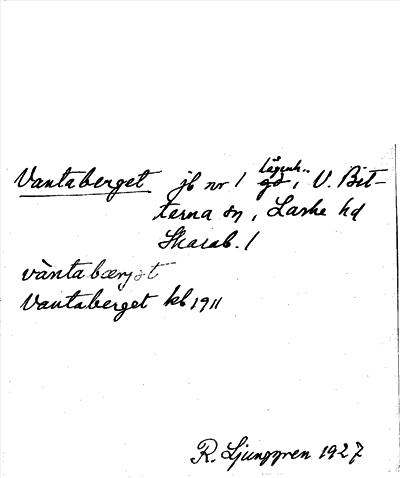 Vantaberget jb nr 1 lägenh. gd, V. Bit-
terna sn, Laske hd
Skarab. l
vàntabærjət
Vantaberget kb 1911
R. Ljunggren 1927